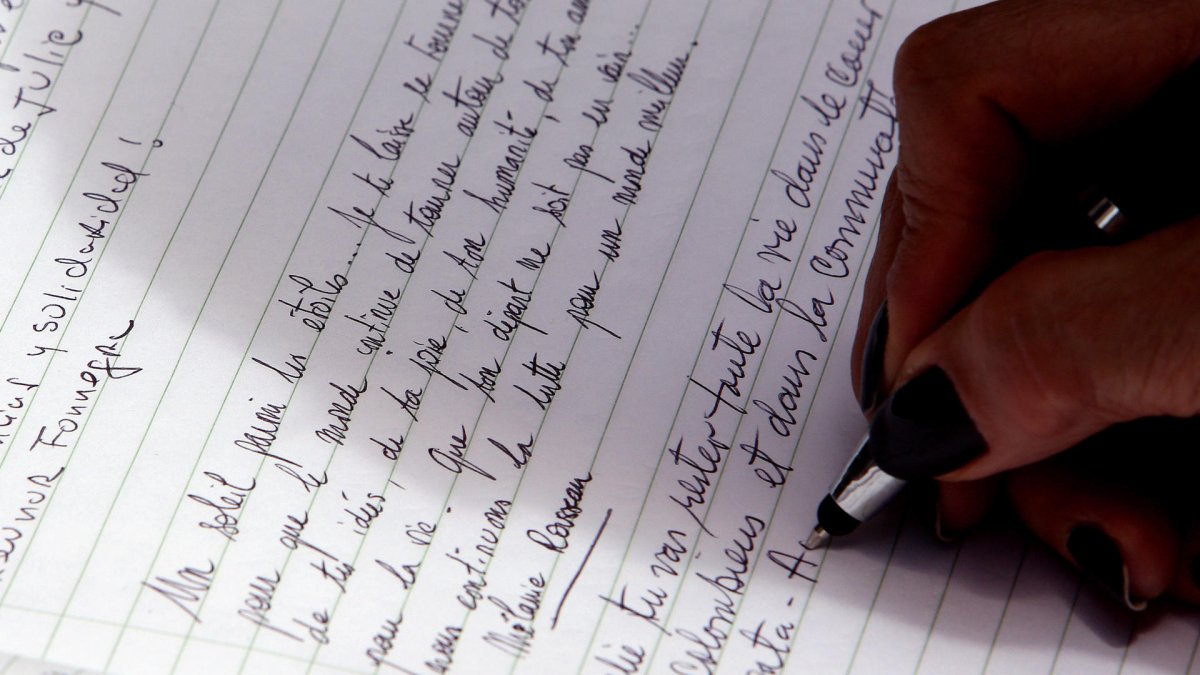 de Julie y
y solidaridad!
Fonnegra
Un soleil parmi les étoiles... Je te laisse le
pour que le monde continue de tourner autour de
de tes idées, de ta joie, de ton humanité, de ton
pour la vie. Que ton départ ne soit pas en vain...
nous continuons la lutte pour un monde meilleur.
Mélanie
tu vas rester toute la vie dans le coeur
colombiens et dans la
A